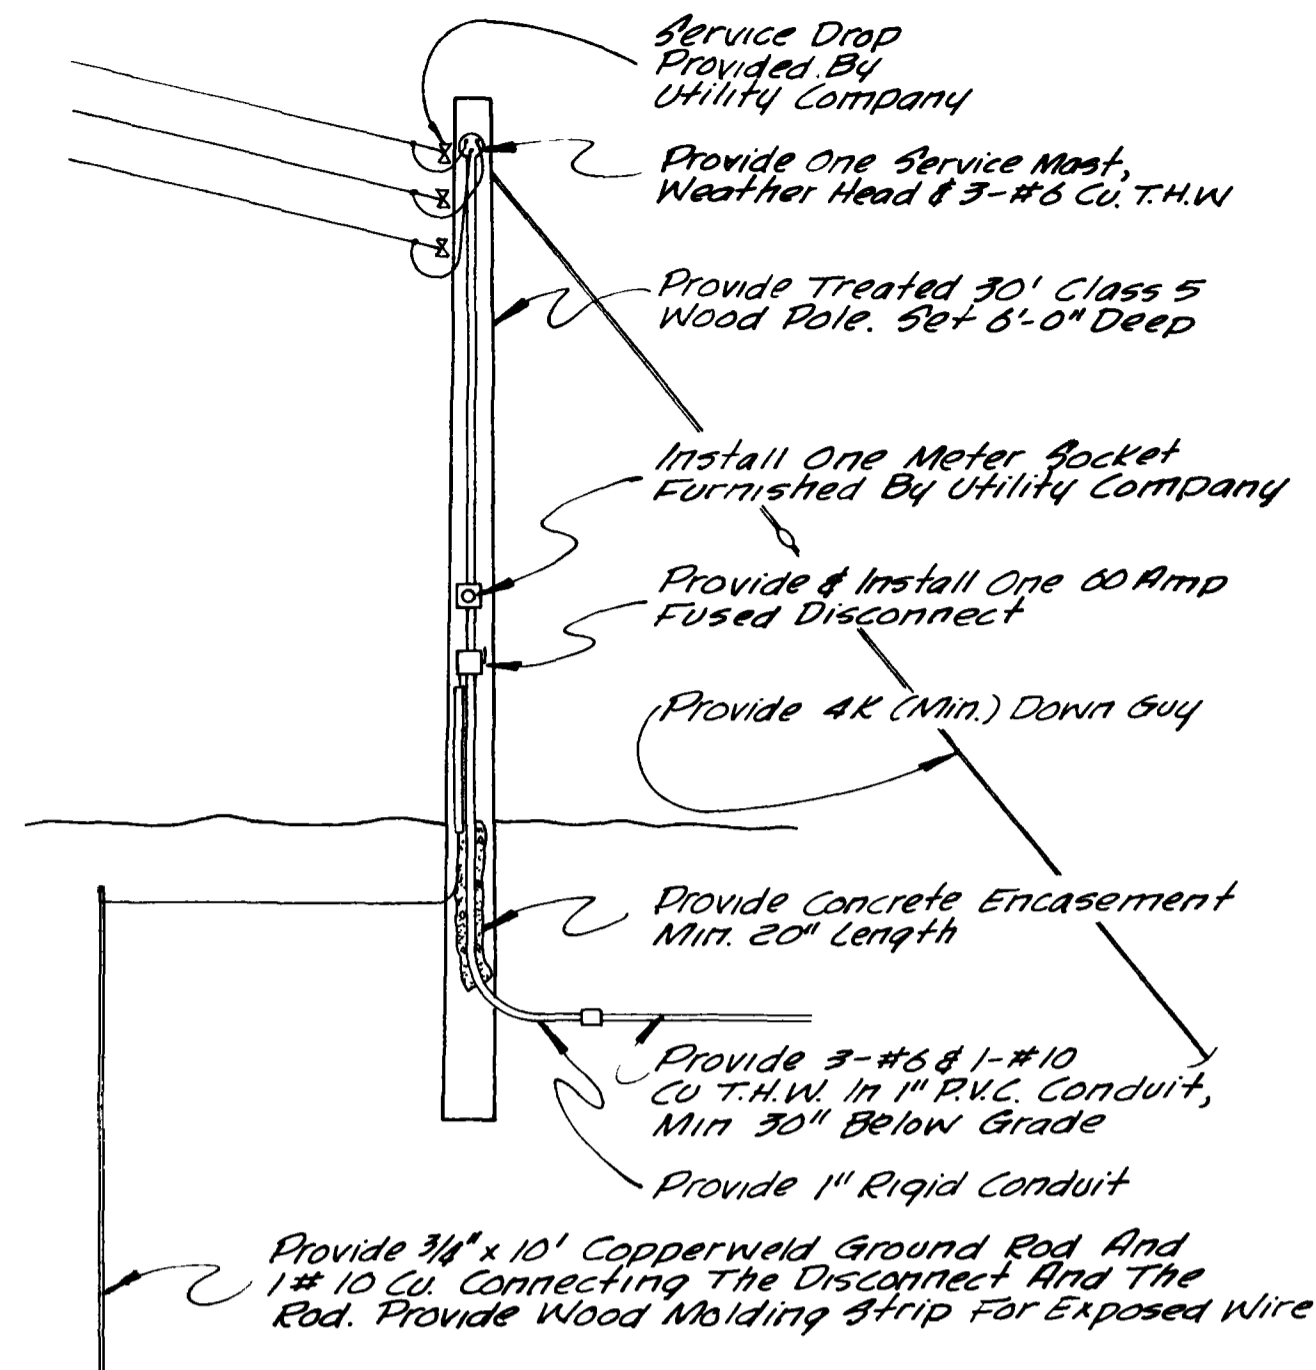 Service Drop
Provided By
Utility Company
Provide One Service Mast,
Weather Head & 3-#6 Cu. T.H.W
Provide Treated 30' Class 5
Wood Pole. Set 6'-0" Deep
Install One Meter Socket
Furnished By Utility Company
Provide & Install One 60 Amp
Fused Disconnect
Provide 4K (Min.) Down Guy
Provide Concrete Encasement
Min. 20" Length
Provide 3-#6 & 1-#10
Cu T.H.W. In 1" P.V.C. Conduit,
Min 30" Below Grade
Provide 1" Rigid Conduit
Provide 3/4" x 10' Copperweld Ground Rod And
1#10 Cu. Connecting The Disconnect And The
Rod. Provide Wood Molding Strip For Exposed Wire